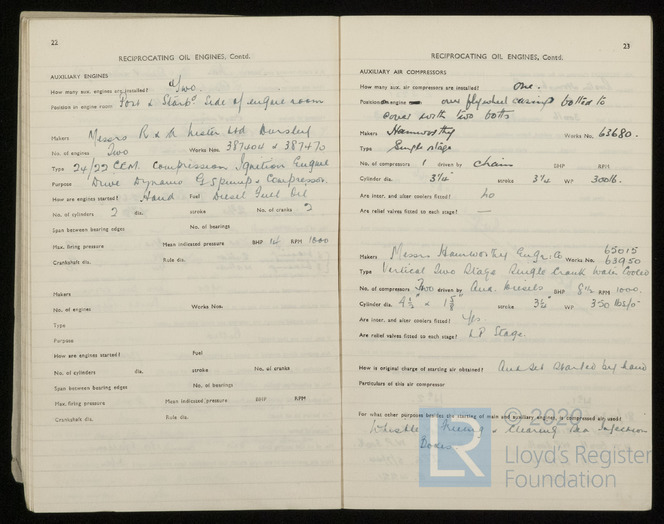 22
RECIPROCATING OIL ENGINES, Contd.
AUXILIARY ENGINES
How many aux. engines are installed? Two.
Position in engine room Port & Starbd Side of engine room
Makers Messrs R & A Lister Ltd Dursley
No. of engines Two Works Nos. 387404 & 387470
Type 24/22 C.E.M. Compression Ignition Engine
Purpose Drive Dynamo G.S pump & Compressor.
How are engines started? Hand Fuel Diesel Fuel Oil
No. of cylinders 2 dia. stroke No. of cranks 2
Span between bearing edges No. of bearings
Max. firing pressure Mean indicated pressure BHP 14 RPM 1000
Crankshaft dia. Rule dia.
Makers
No. of engines Works Nos.
Type
Purpose
How are engines started? Fuel
No. of cylinders dia. stroke No. of cranks
Span between bearing edges No. of bearings
Max. firing pressure Mean indicated pressure BHP RPM
Crankshaft dia. Rule dia.
23
RECIPROCATING OIL ENGINES, Contd.
AUXILIARY AIR COMPRESSORS
How many aux. air compressors are installed? One.
Position engine over flywheel casing bolted to
cover with two bolts
Makers Hamworthy Works No. 63680.
Type Single stage
No. of compressors 1 driven by chain BHP RPM
Cylinder dia. 3¼" stroke 3¼ WP 300lb.
Are inter. and after coolers fitted? No
Are relief valves fitted to each stage? —
65015
Makers Messrs Hamworthy Engr. Co Works No. 63950
Type Vertical Two Stage Single Crank Water Cooled
No. of compressors Two driven by Aux. Diesels BHP 8½ RPM 1000.
Cylinder dia. stroke 3½" WP 350 lbs/□"
Are inter. and after coolers fitted? Yes.
Are relief valves fitted to each stage? LP Stage.
How is original charge of starting air obtained? Aux Set started by hand
Particulars of this air compressor
For what other purposes besides the starting of main and auxiliary engines, is compressed air used?
Whistle & Clearing Sea Injection
Boxes
© 2020
LR
Lloyd's Register
Foundation